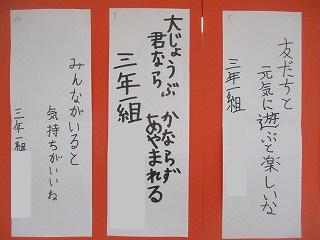 友だちと
元気に遊ぶと楽しいな
三年一組
大じょうぶ かならず
君なら あやまれる
三年一組
みんながいると
気持ちがいいね
三年一組